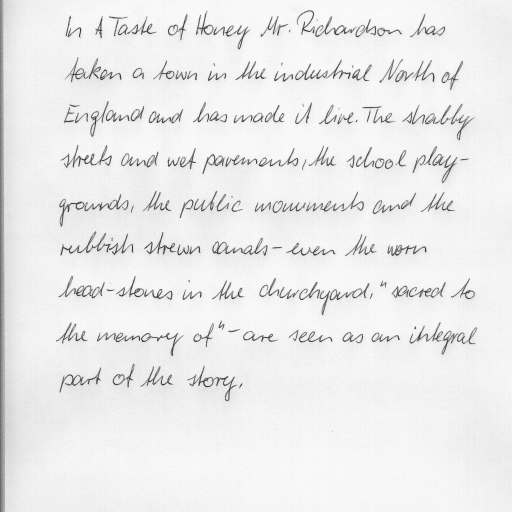 In A Taste of Honey Mr. Richardson has
taken a town in the industrial North of
England and has made it live. The shabby
streets and wet pavements, the school play-
grounds, the public monuments and the
rubbish strewn canals - even the worn
head-stones in the churchyard, "sacred to
the memory of" - are seen as an integral
part of the story.